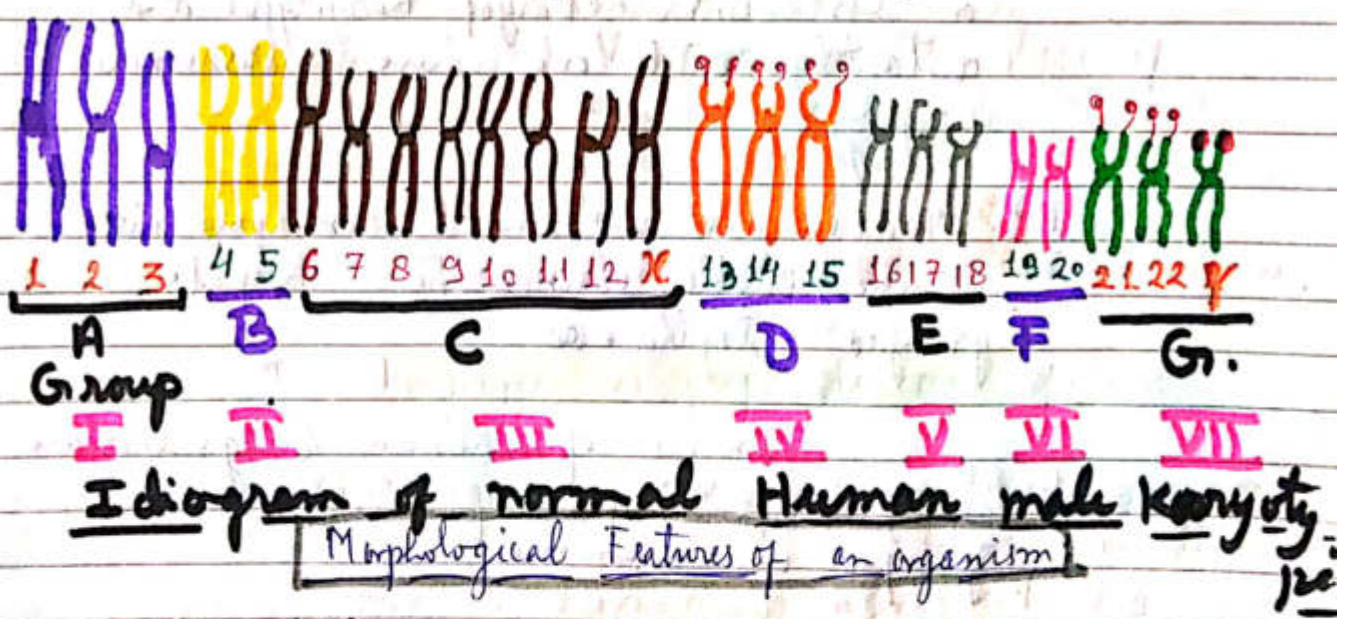 1 2 3 4 5 6 7 8 9 10 11 12 X 13 14 15 16 17 18 19 20 21 22 Y
A B C D E F G.
Group
I II III IV V VI VII
Idiogram of normal Human male Karyoty-
pe
Morphological Features of an organism